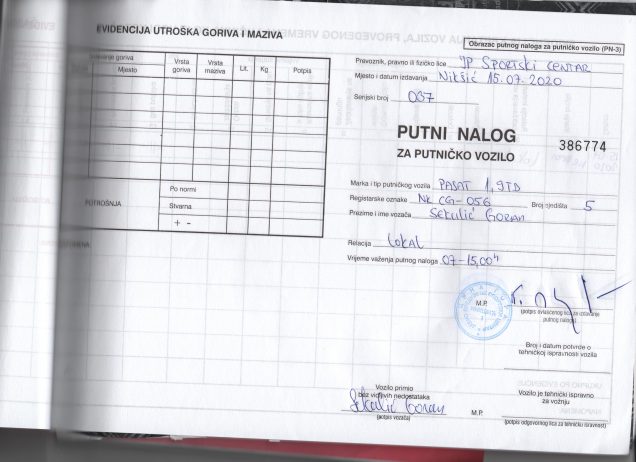 EVIDENCIJA UTROŠKA GORIVA I MAZIVA
goriva
Mjesto
Vrsta goriva
Vrsta maziva
Lit.
Kg
Potpis
POTROŠNJA
Po normi
Stvarna
+ -
Obrazac putnog naloga za putničko vozilo (PN-3)
Prevoznik, pravno ili fizičko lice JP SPORTSKI CENTAR
Mjesto i datum izdavanja NIKŠIĆ 15.07.2020
Serijski broj 037
PUTNI NALOG
ZA PUTNIČKO VOZILO
386774
Marka i tip putničkog vozila PASAT 1,9TD
Registarske oznake NK CG-056 Broj sjedišta 5
Prezime i ime vozača SEKULIĆ GORAN
Relacija LOKAL
Vrijeme važenja putnog naloga 07-15,00h
M.P.
(potpis ovlašćenog lica za izdavanje
putnog naloga)
Broj i datum potvrde o
tehničkoj ispravnosti vozila
Vozilo primio
bez vidljivih nedostataka
Sekulić Goran
(potpis vozača)
M.P.
Vozilo je tehnički ispravno
za vožnju
(potpis odgovornog lica za tehničku ispravnost)